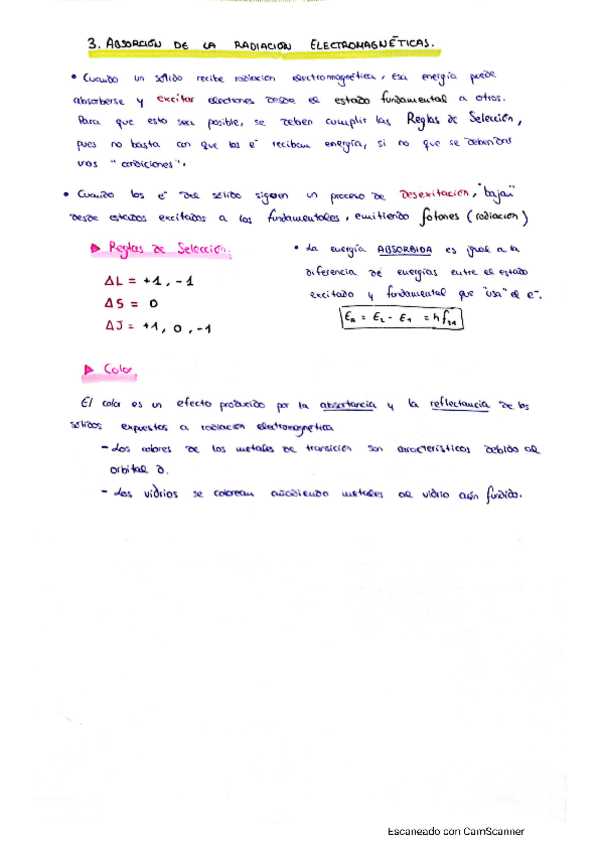 3. ABSORCIÓN DE LA RADIACIÓN ELECTROMAGNÉTICAS.
• Cuando un sólido recibe radiación electromagnética, esa energía puede
absorberse y excitar electrones desde el estado fundamental a otros.
Para que esto sea posible, se deben cumplir las Reglas de Selección,
pues no basta con que los e⁻ reciban energía, si no que se deben dar
unas "condiciones".
• Cuando los e⁻ del sólido siguen un proceso de desexitación, "bajan"
desde estados excitados a los fundamentales, emitiendo fotones (radiación)
▶ Reglas de Selección.
ΔL = +1, -1
ΔS = 0
ΔJ = +1, 0, -1
• La energía ABSORBIDA es igual a la
diferencia de energías entre el estado
excitado y fundamental que "usa" el e⁻.
Ea = E2 - E1 = hf21
▶ Color
El color es un efecto producido por la absortancia y la reflectancia de los
sólidos expuestos a radiación electromagnética
- Los colores de los metales de transición son característicos debido al
orbital d.
- Los vidrios se colorean añadiendo metales al vidrio aún fundido.
Escaneado con CamScanner